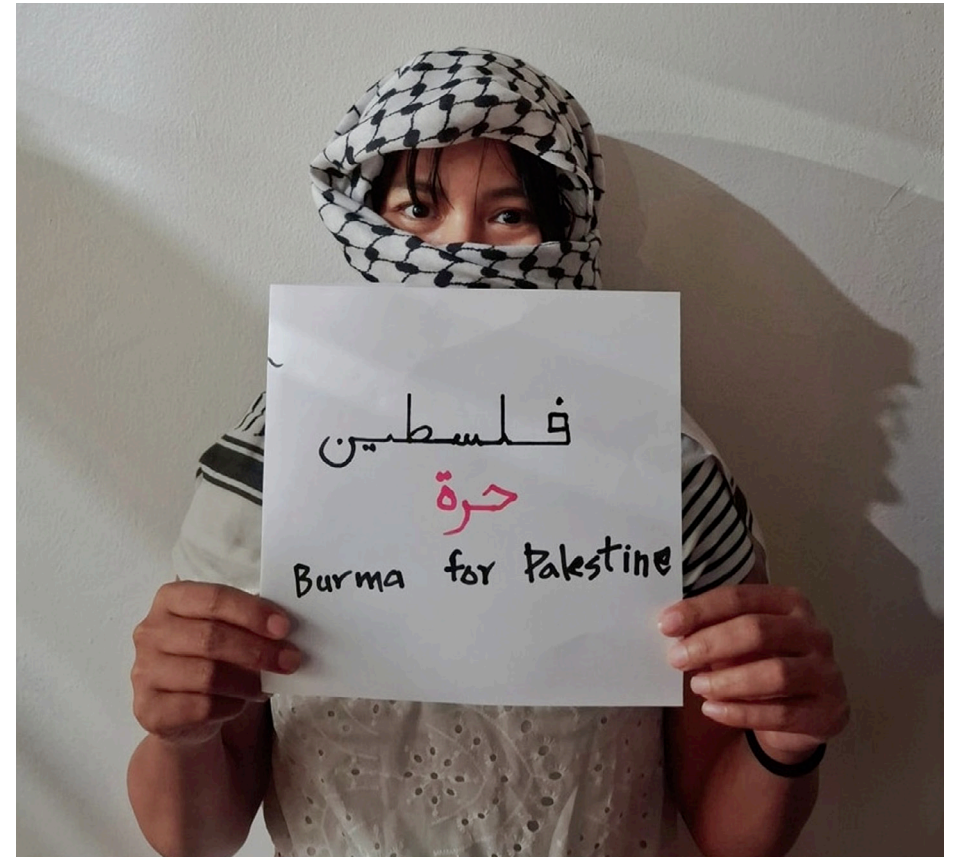 فلسطين
حرة
Burma for Palestine